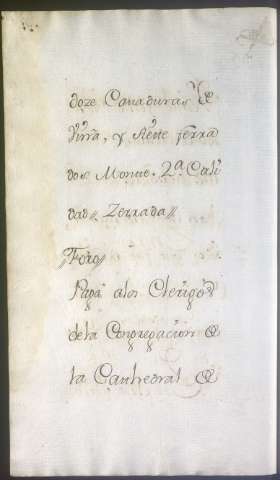 doze Cavaduras de
Viña, y siette ferra
dos Monte. 2ª. Cali
dad// Zerrada//
//Foro//
Paga alos Clerigos
dela Congregacion de
la Cathedral de